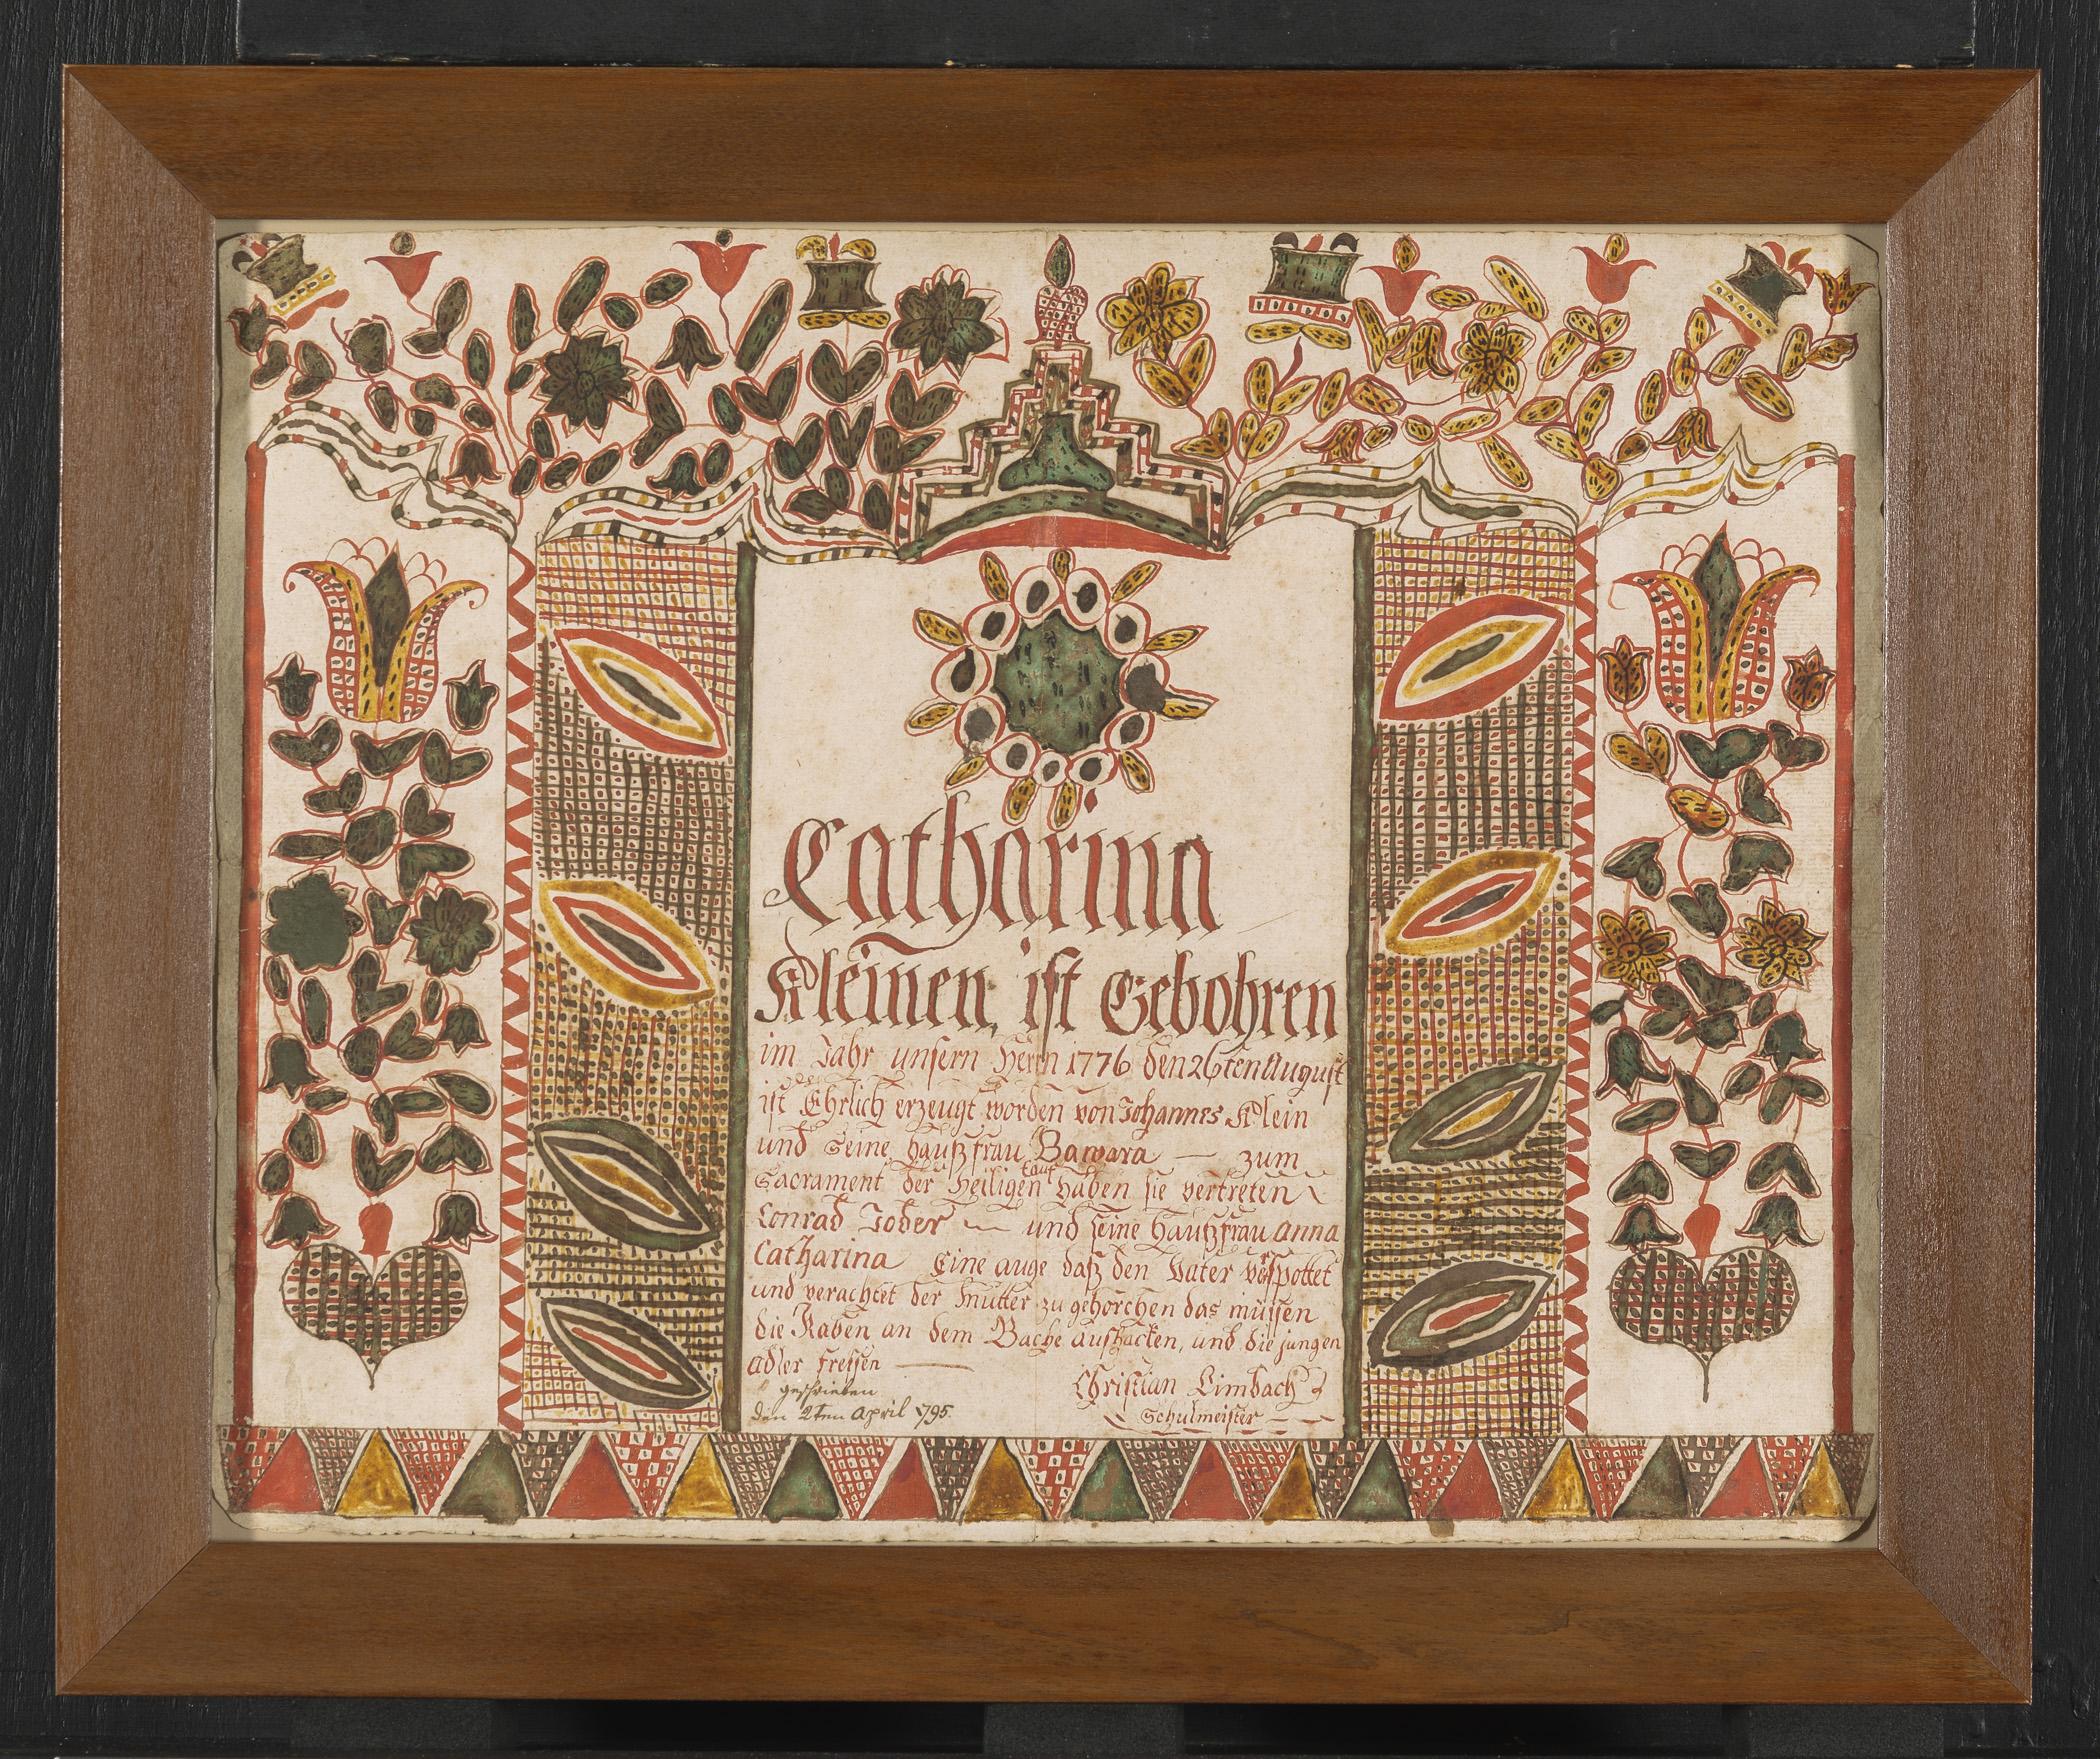 Catharina
Kleinen, ist Gebohren
im Jahr unsern Herrn 1776 den 26ten August
ist Ehrlich erzeugt worden von Johannes Klein
und seine haußfrau Bawara — zum
Sacrament der Heiligen tauf haben sie vertreten
Conrad Joder — und seine Haußfrau anna
Catharina Eine auge daß den Vater verspottet
und verachtet der Mutter zu gehorchen das müssen
die Raben an dem Bache aushacken, und die jungen
adler fressen —
geschrieben
den 2ten April 1795
Christian Limbach
Schulmeister —